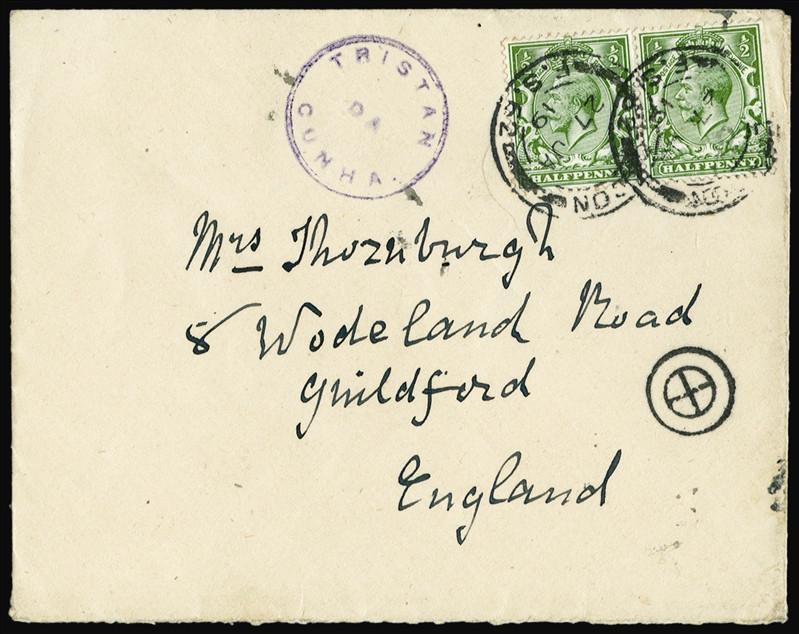 TRISTAN
DA
CUNHA
½ ½
½ ½
HALFPENNY
HALFPENNY
F.S. 62
Mrs Thornburgh
8 Wodeland Road
Guildford
England